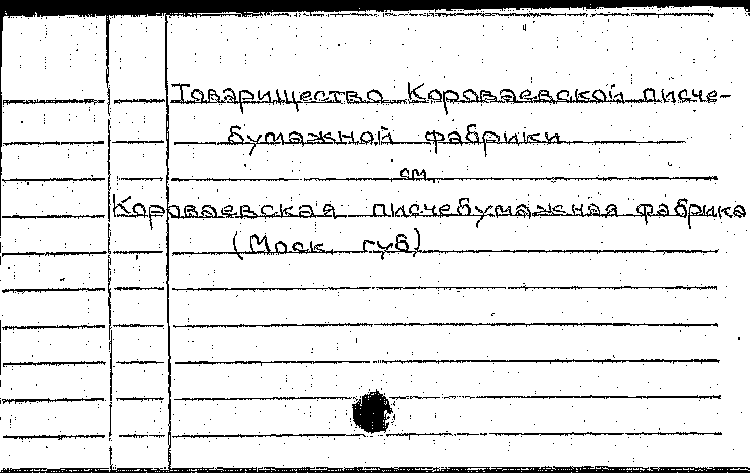 Товарищество Короваевской писче-
бумажной фабрики
см.
Короваевская писчебумажная фабрика
(Моск. губ)